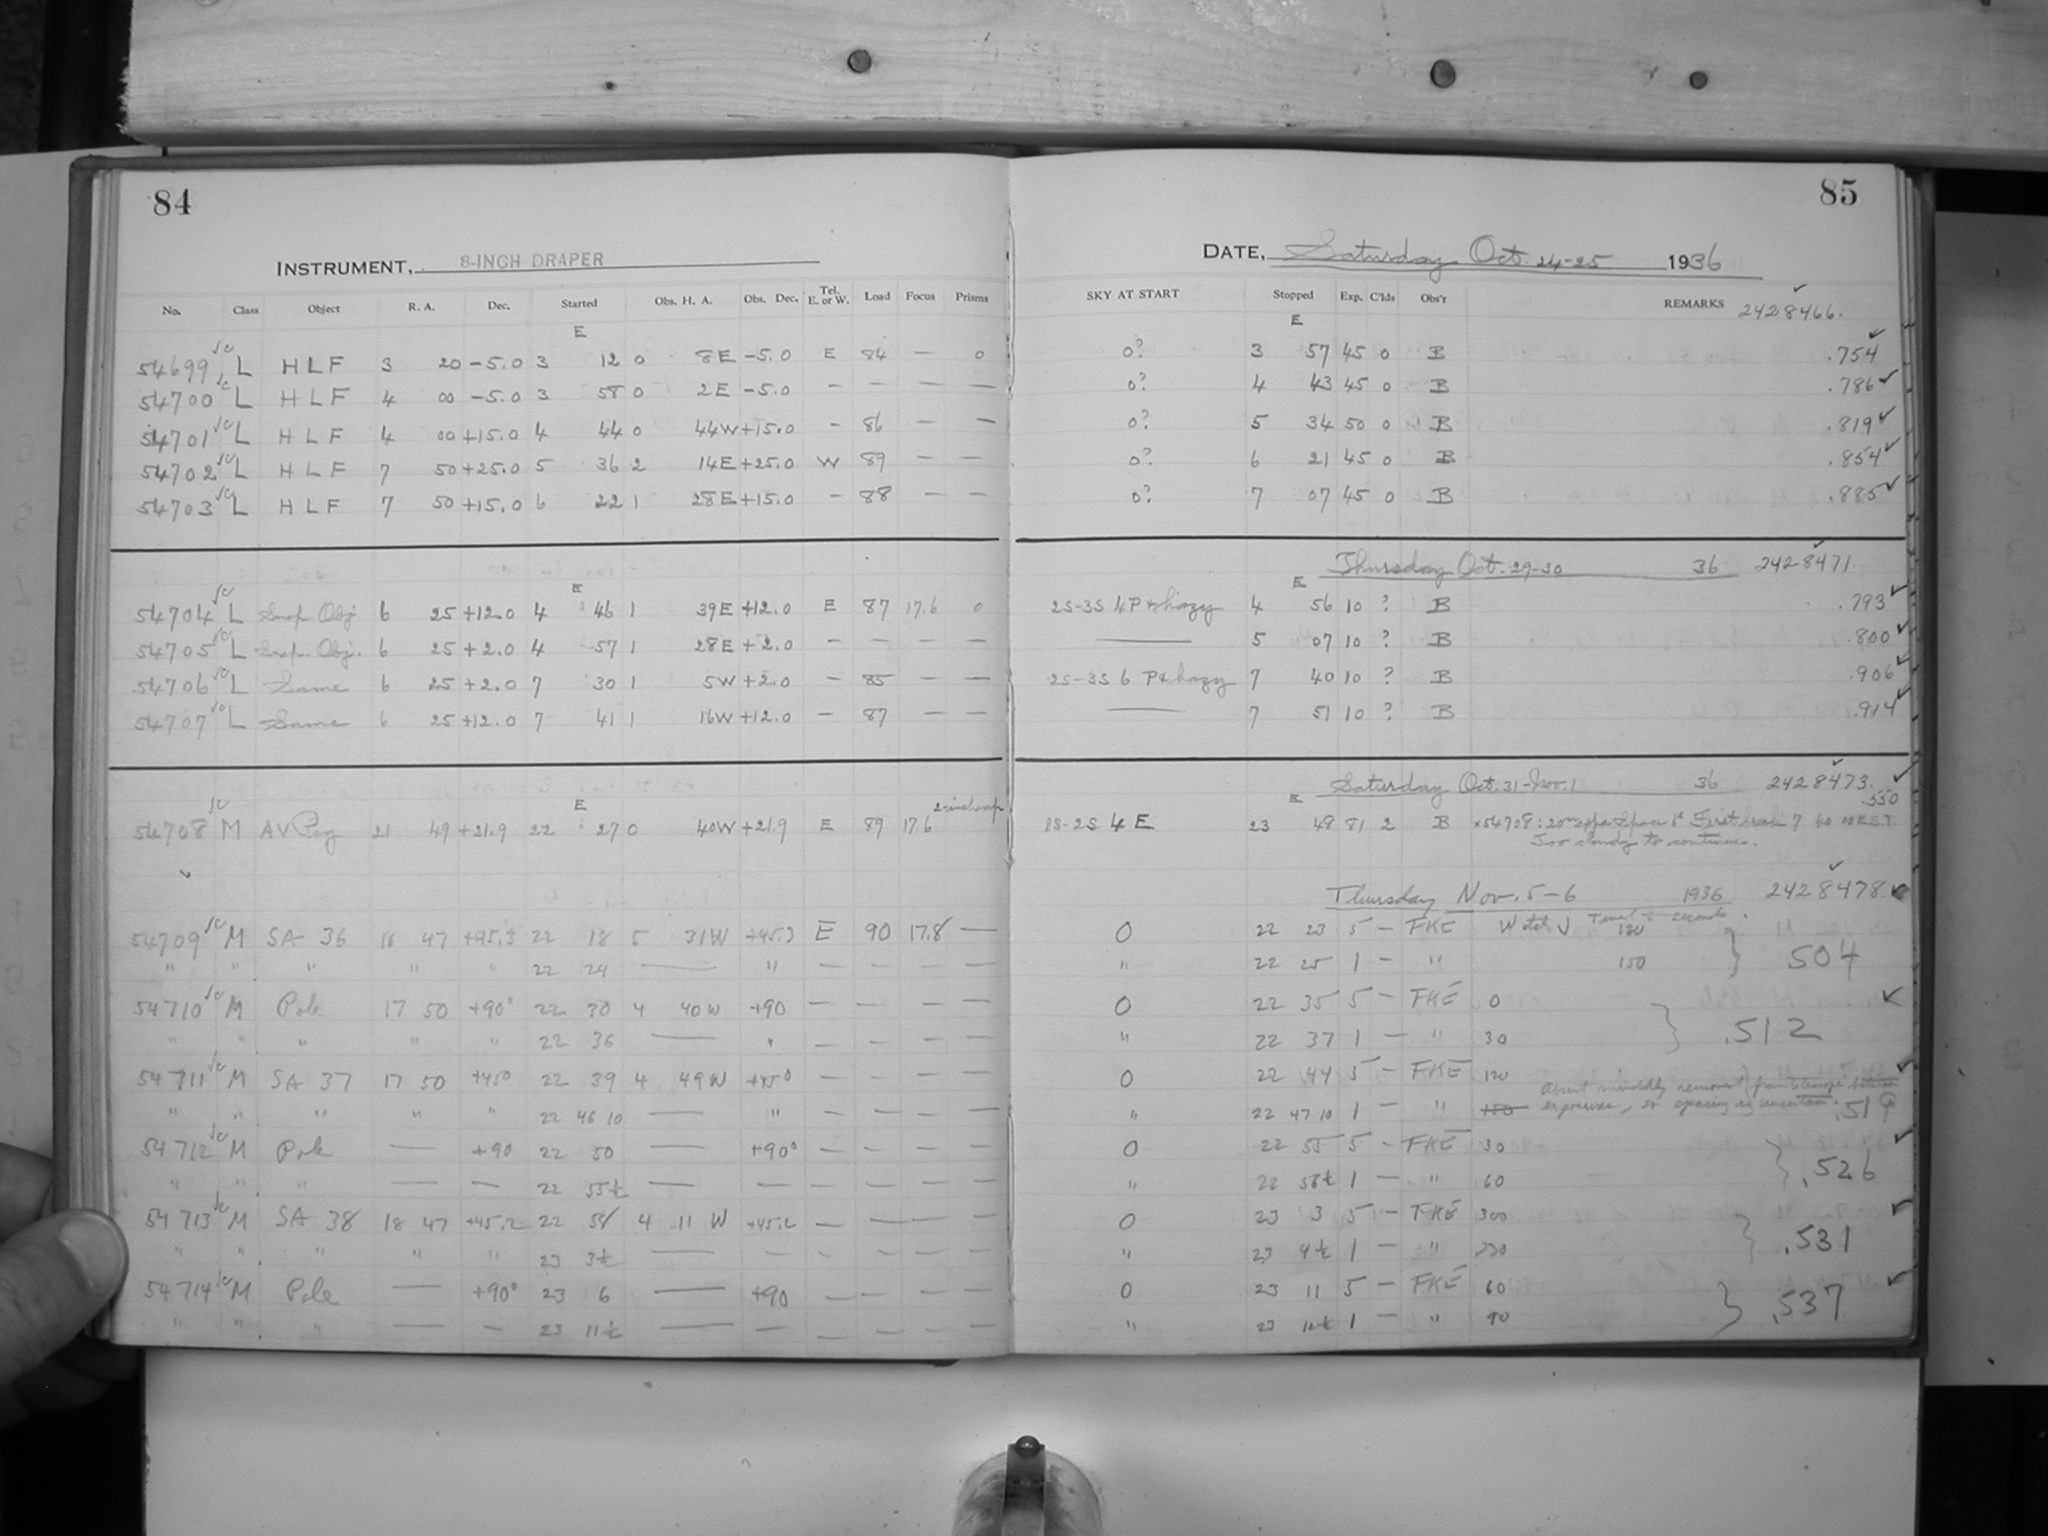 84
INSTRUMENT, 8-INCH DRAPER
No. Class Object R. A. Dec. Started Obs. H. A. Obs. Dec. Tel. E. or W. Load Focus Prisms
E
54699 L HLF 3 20 -5.0 3 12 0 8E -5.0 E 84 — 0
54700 L HLF 4 00 -5.0 3 58 0 2E -5.0 — — — —
54701 L HLF 4 00 +15.0 4 44 0 44W +15.0 — 86 — —
54702 L HLF 7 50 +25.0 5 36 2 14E +25.0 W 89 — —
54703 L HLF 7 50 +15.0 6 22 1 28E +15.0 — 88 — —
E
54704 L Susp. Obj. 6 25 +12.0 4 46 1 39E +12.0 E 87 17.6 0
54705 L Susp. Obj. 6 25 +2.0 4 57 1 28E +2.0 — — — —
54706 L Same 6 25 +2.0 7 30 1 5W +2.0 — 85 — —
54707 L Same 6 25 +12.0 7 41 1 16W +12.0 — 87 — —
E
54708 M AV Peg 21 49 +21.9 22 27 0 40W +21.9 E 89 17.6 2-inch cap
54709 M SA 36 16 47 +45.3 22 18 5 31W +45.3 E 90 17.8 —
" " " " " 22 24 — " — — — —
54710 M Pole 17 50 +90° 22 30 4 40W +90 — — — —
" " " " " 22 36 — " — — — —
54711 M SA 37 17 50 +45° 22 39 4 49W +45° — — — —
" " " " " 22 46 10 — " — — — —
54712 M Pole — +90 22 50 — +90° — — — —
" " " — — 22 55½ — — — — — —
54713 M SA 38 18 47 +45.2 22 58 4 11 W +45.2 — — — —
" " " " " 23 3½ — — — — — —
54714 M Pole — +90° 23 6 — +90 — — — —
" " " — — 23 11½ — — — — — —
85
DATE, Saturday Oct. 24-25 1936
SKY AT START Stopped Exp. C'lds Obs'r REMARKS 2428466.
E
0? 3 57 45 0 B .754
0? 4 43 45 0 B .786
0? 5 34 50 0 B .819
0? 6 21 45 0 B .854
0? 7 07 45 0 B .885
Thursday Oct. 29-30 36 2428471.
E
2S-3S 4 P & hazy 4 56 10 ? B .793
— 5 07 10 ? B .800
2S-3S 6 P & hazy 7 40 10 ? B .906
— 7 51 10 ? B .914
Saturday Oct. 31-Nov. 1 36 2428473.
E .550
1S-2S 4 E 23 48 81 2 B x54708: First 7 E.S.T.
Too cloudy to continue.
Thursday Nov. 5-6 1936 2428478.
0 22 23 5 — FKE Watch J seconds 120
" 22 25 1 — " 150 } 504
0 22 35 5 — FKE 0
" 22 37 1 — " 30 } .512
0 22 44 5 — FKE 120
" 22 47 10 1 — " 150 removed from telescope between exposures, so spacing is uncertain. .519
0 22 55 5 — FKE 30
" 22 56½ 1 — " 60 } .526
0 23 3 5 — FKE 300
" 23 4½ 1 — " 330 } .531
0 23 11 5 — FKE 60
" 23 12½ 1 — " 90 } .537